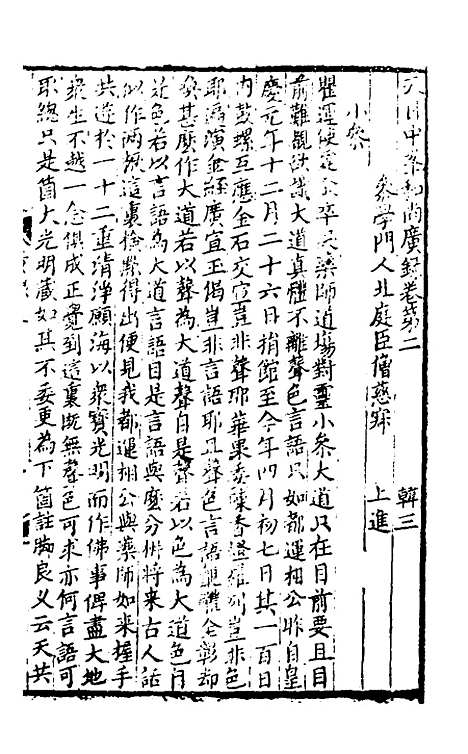 天目中峯和尚廣錄卷第二　韓三
參學門人北庭臣僧慈寂　上進
小參
瞿運使霆公卒哭藥師道場對靈小參大道只在目前要且目
前難覩欲識大道真體不離聲色言語只如都運相公昨自皇
慶元年十二月二十六日捐館至今年四月初七日其一百日
內鼓螺互應金石交宣豈非聲耶華果委陳香燈羅列豈非色
耶編演金經廣宣玉偈豈非言語耶且聲色言語覿體全彰却
喚甚麼作大道若以聲為大道聲自是聲若以色為大道色自
是色若以言語為大道言語自是言語與麼分併將来古人話
似作兩橛這裏撿㸃得出便見我都運相公與藥師如来握手
共遊於一十二重清淨願海以衆寶光明而作佛事俾盡大地
衆生不越一念俱成正覺到這裏旣無聲色可求亦何言語可
取總只是箇大光明藏如其不委更為下箇註脚良乂云天共